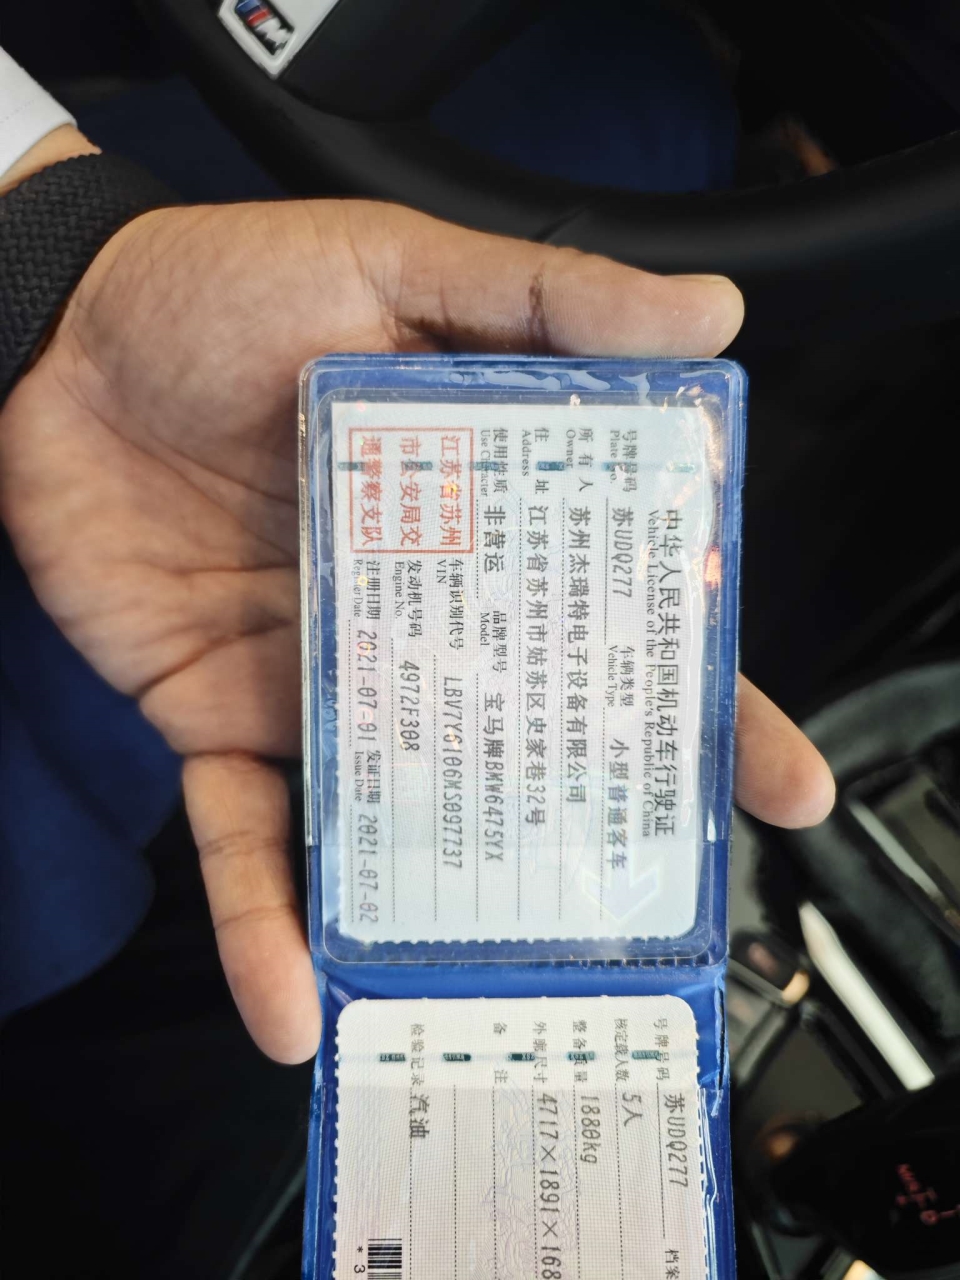 中华人民共和国机动车行驶证
Vehicle License of the People's Republic of China
号牌号码 苏UDQ277 车辆类型 小型普通客车
Plate No. Vehicle Type
所有人 苏州杰瑞特电子设备有限公司
Owner
住址 江苏省苏州市姑苏区史家巷32号
Address
使用性质 非营运 品牌型号 宝马牌BMW6475YX
Use Character Model
江苏省苏州
市公安局交
通警察支队
车辆识别代号 LBV7Y0106MS097737
VIN
发动机号码 4972F308
Engine No.
注册日期 2021-07-01 发证日期 2021-07-02
Register Date Issue Date
号牌号码 苏UDQ277 档案
核定载人数 5人
整备质量 1880kg
外廓尺寸 4717×1891×168
备注
检验记录 汽油
*3
M